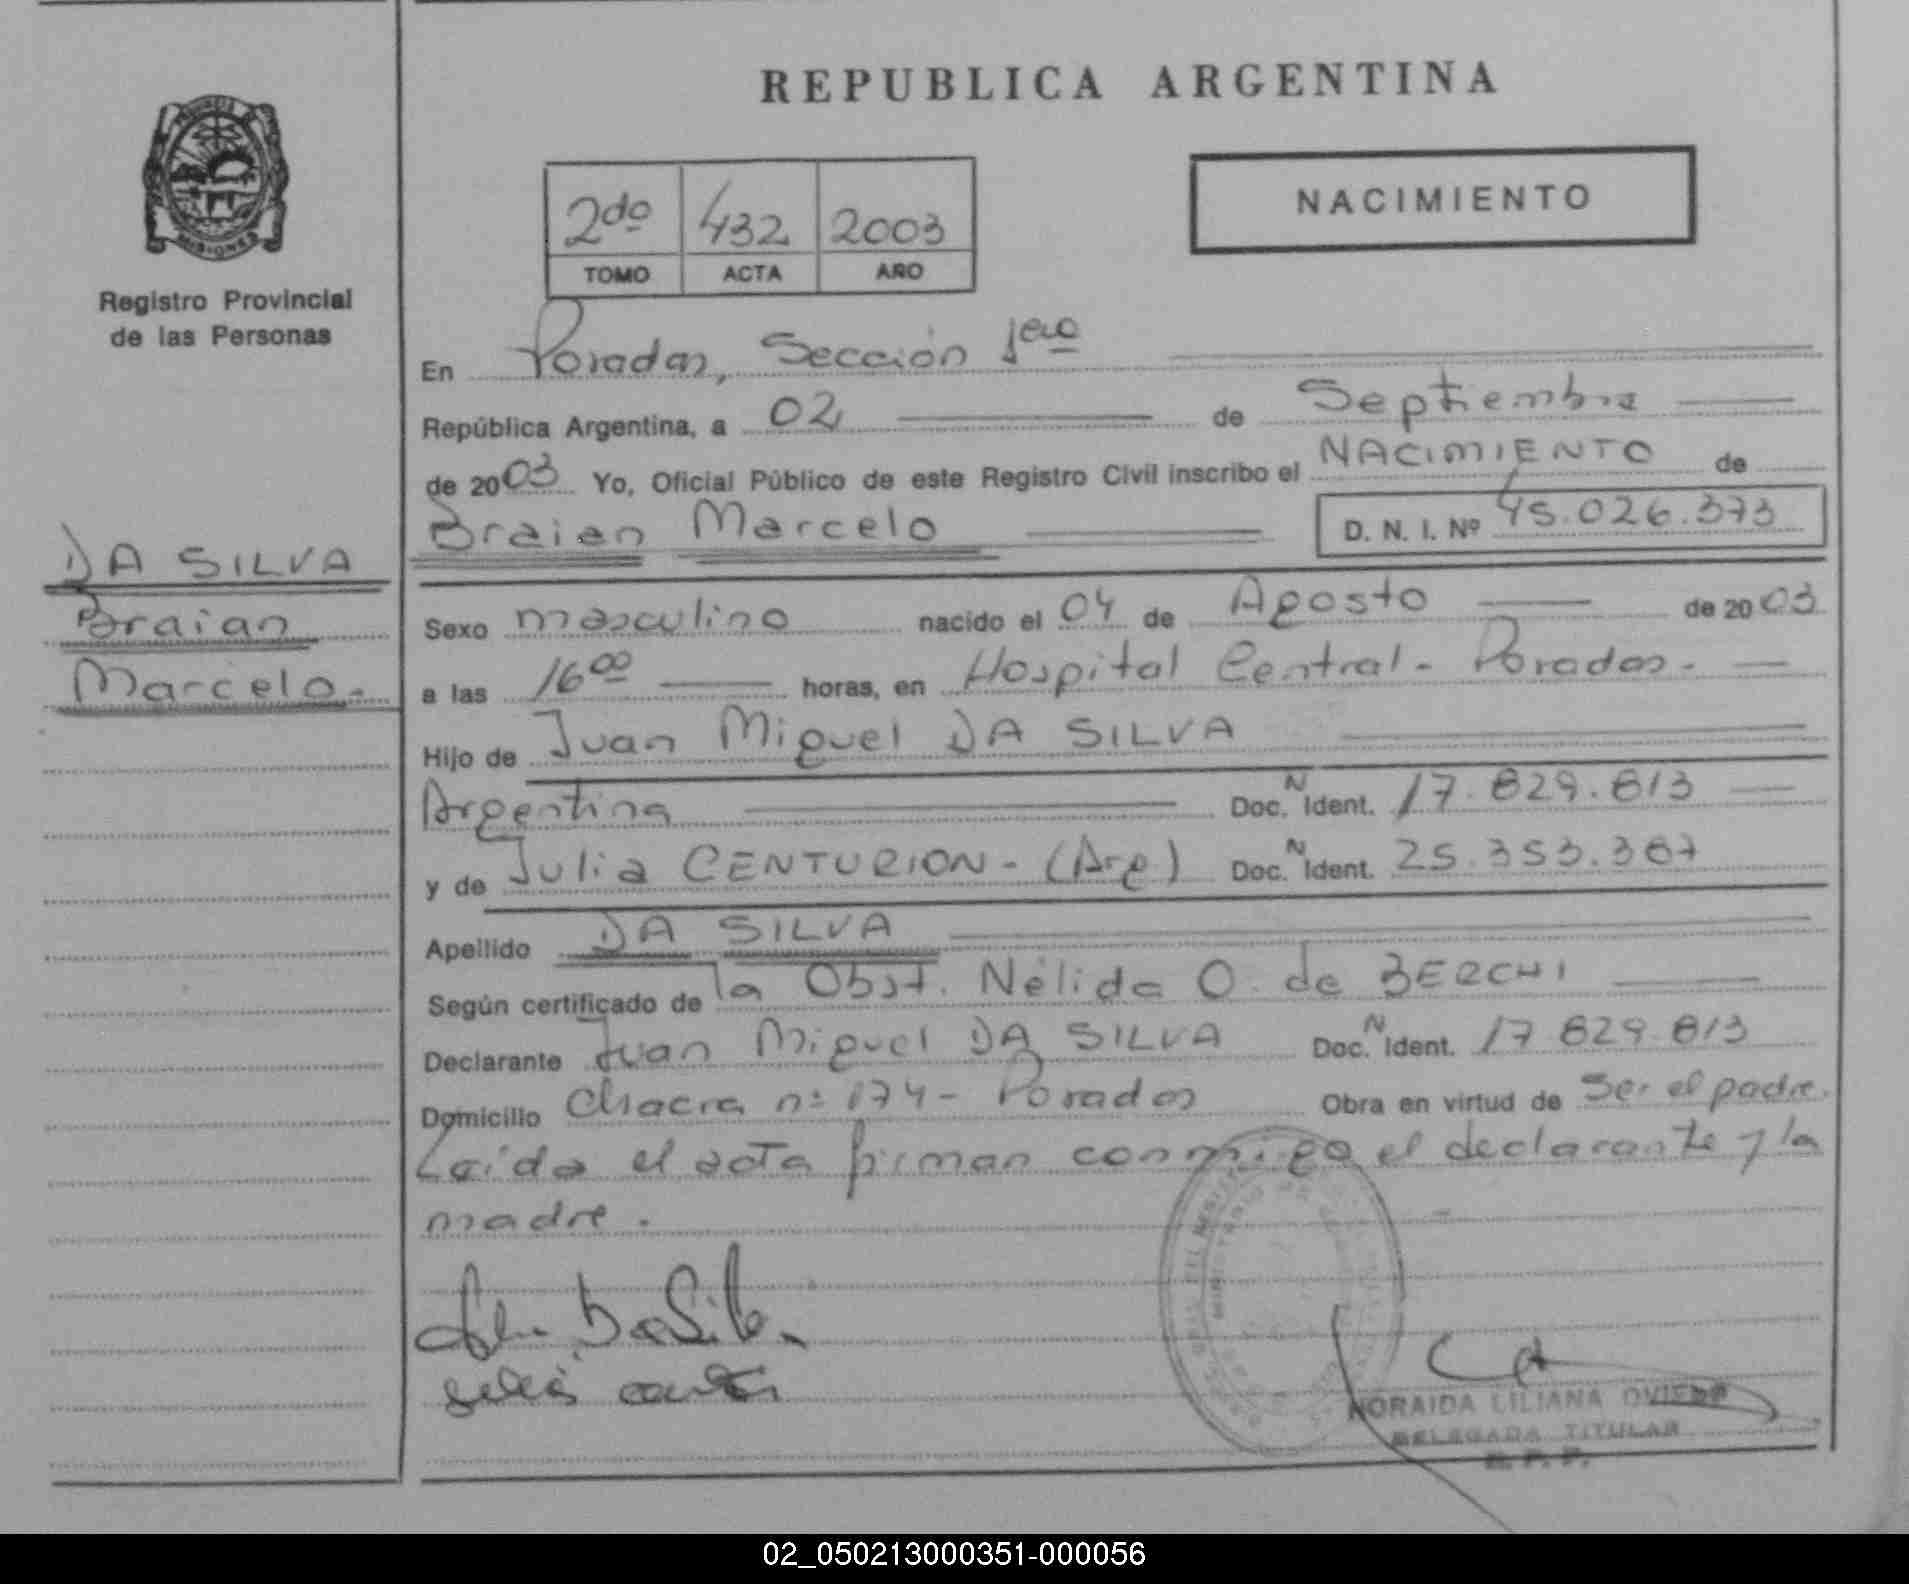 REPUBLICA ARGENTINA
PROVINCIA
MISIONES
Registro Provincial
de las Personas
2do 432 2003
TOMO ACTA AÑO
NACIMIENTO
En Posadas, Sección 1era
República Argentina, a 02 de Septiembre
de 2003 Yo, Oficial Público de este Registro Civil inscribo el NACIMIENTO de
Braian Marcelo D. N. I. Nº 45.026.373
DA SILVA
Braian
Marcelo.
Sexo masculino nacido el 04 de Agosto de 2003
a las 16 00 horas, en Hospital Central - Posadas.
Hijo de Juan Miguel DA SILVA
Argentina Doc. N Ident. 17.829.813
y de Julia CENTURION - (Arg) Doc. N Ident. 25.353.367
Apellido DA SILVA
Según certificado de la Obst. Nélida O. de BERCHI
Declarante Juan Miguel DA SILVA Doc. N Ident. 17.829.813
Domicilio Chacra nº 174 - Posadas Obra en virtud de Ser el padre.
Leída el acta firman conmigo el declarante y la
madre.
Da Silva
NORAIDA LILIANA OVIEDO
DELEGADA TITULAR
R. P. P.
02_050213000351-000056